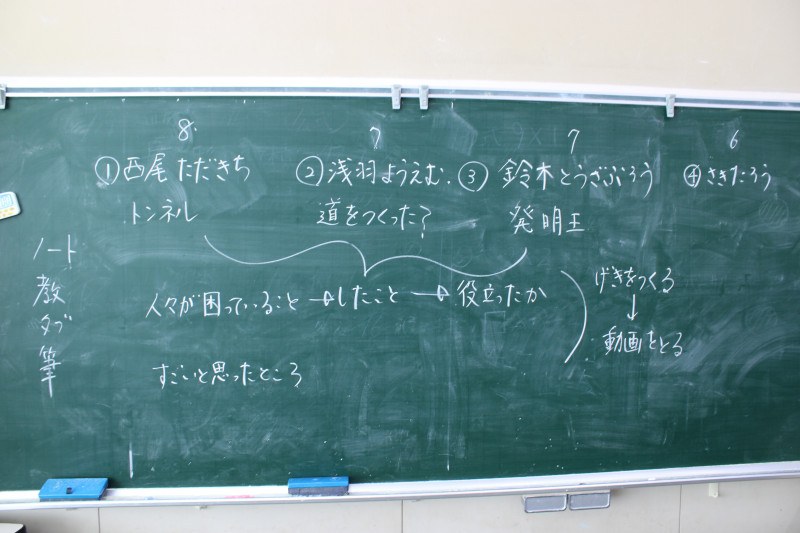 8 7 7 6
①西尾ただきち ②浅羽ようえむ. ③鈴木とうざぶろう ④さきたろう
トンネル 道をつくった? 発明王
人々が困っていること→したこと→役立ったか
すごいと思ったところ
げきをつくる
↓
動画をとる
ノート
教
タブ
筆